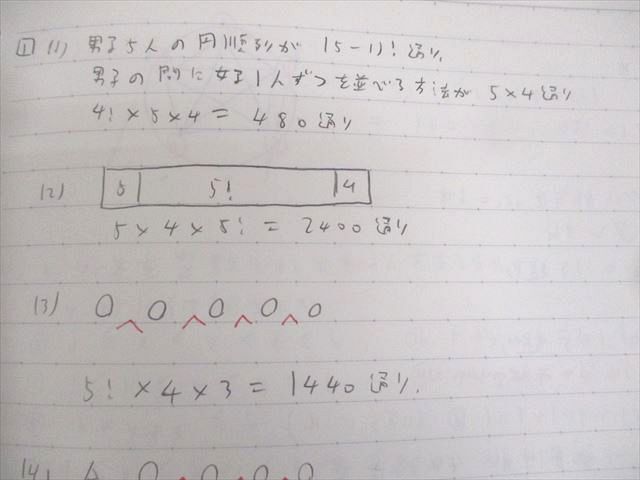 1 (1) 男子5人の円順列が (5-1)! 通り,
男子の間に女子1人ずつを並べる方法が 5×4 通り
4! × 5 × 4 = 480 通り
(2) 5 5! 4
5 × 4 × 5! = 2400 通り
(3) ○ ○ ○ ○ ○
5! × 4 × 3 = 1440 通り.
(4) ○ ○ ○ ○